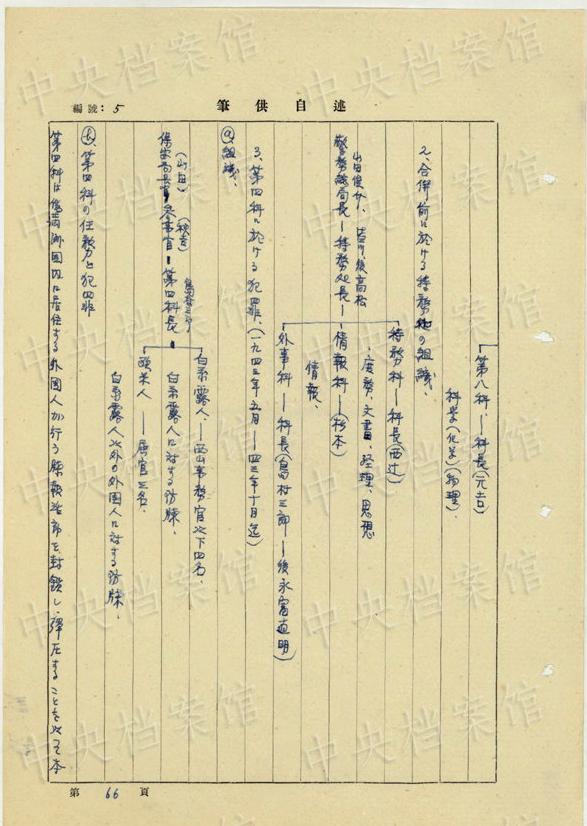 編號：5
述自供筆
第八科、—科長(元吉)
科学(化学)(物理)、
2、合併前に於ける特務処の組織、
特務科—科長(西辻)
庶務、文書、経理、思想
山田俊介、 後高松
警務総局長—特務処長—情報科—(杉本)
情報、
外事科—科長(島村三郎—後永富直明)
3、第四科に於ける犯罪、(一九四三年五月—四三年十月迄)
ⓐ組織、
白系露人—西山事務官以下四名、
(山田) (秋吉) 島村三郎
保安局長—参事官—第四科長
白系露人に対する防諜、
欧米人—属官三名、
白系露人以外の外国人に対する防諜、
ⓑ、第四科の任務と犯罪
第四科は偽満洲国内に居住する外国人が行う諜報活動を封鎖し、弾圧することを以て本
第 66 頁
中央档案馆